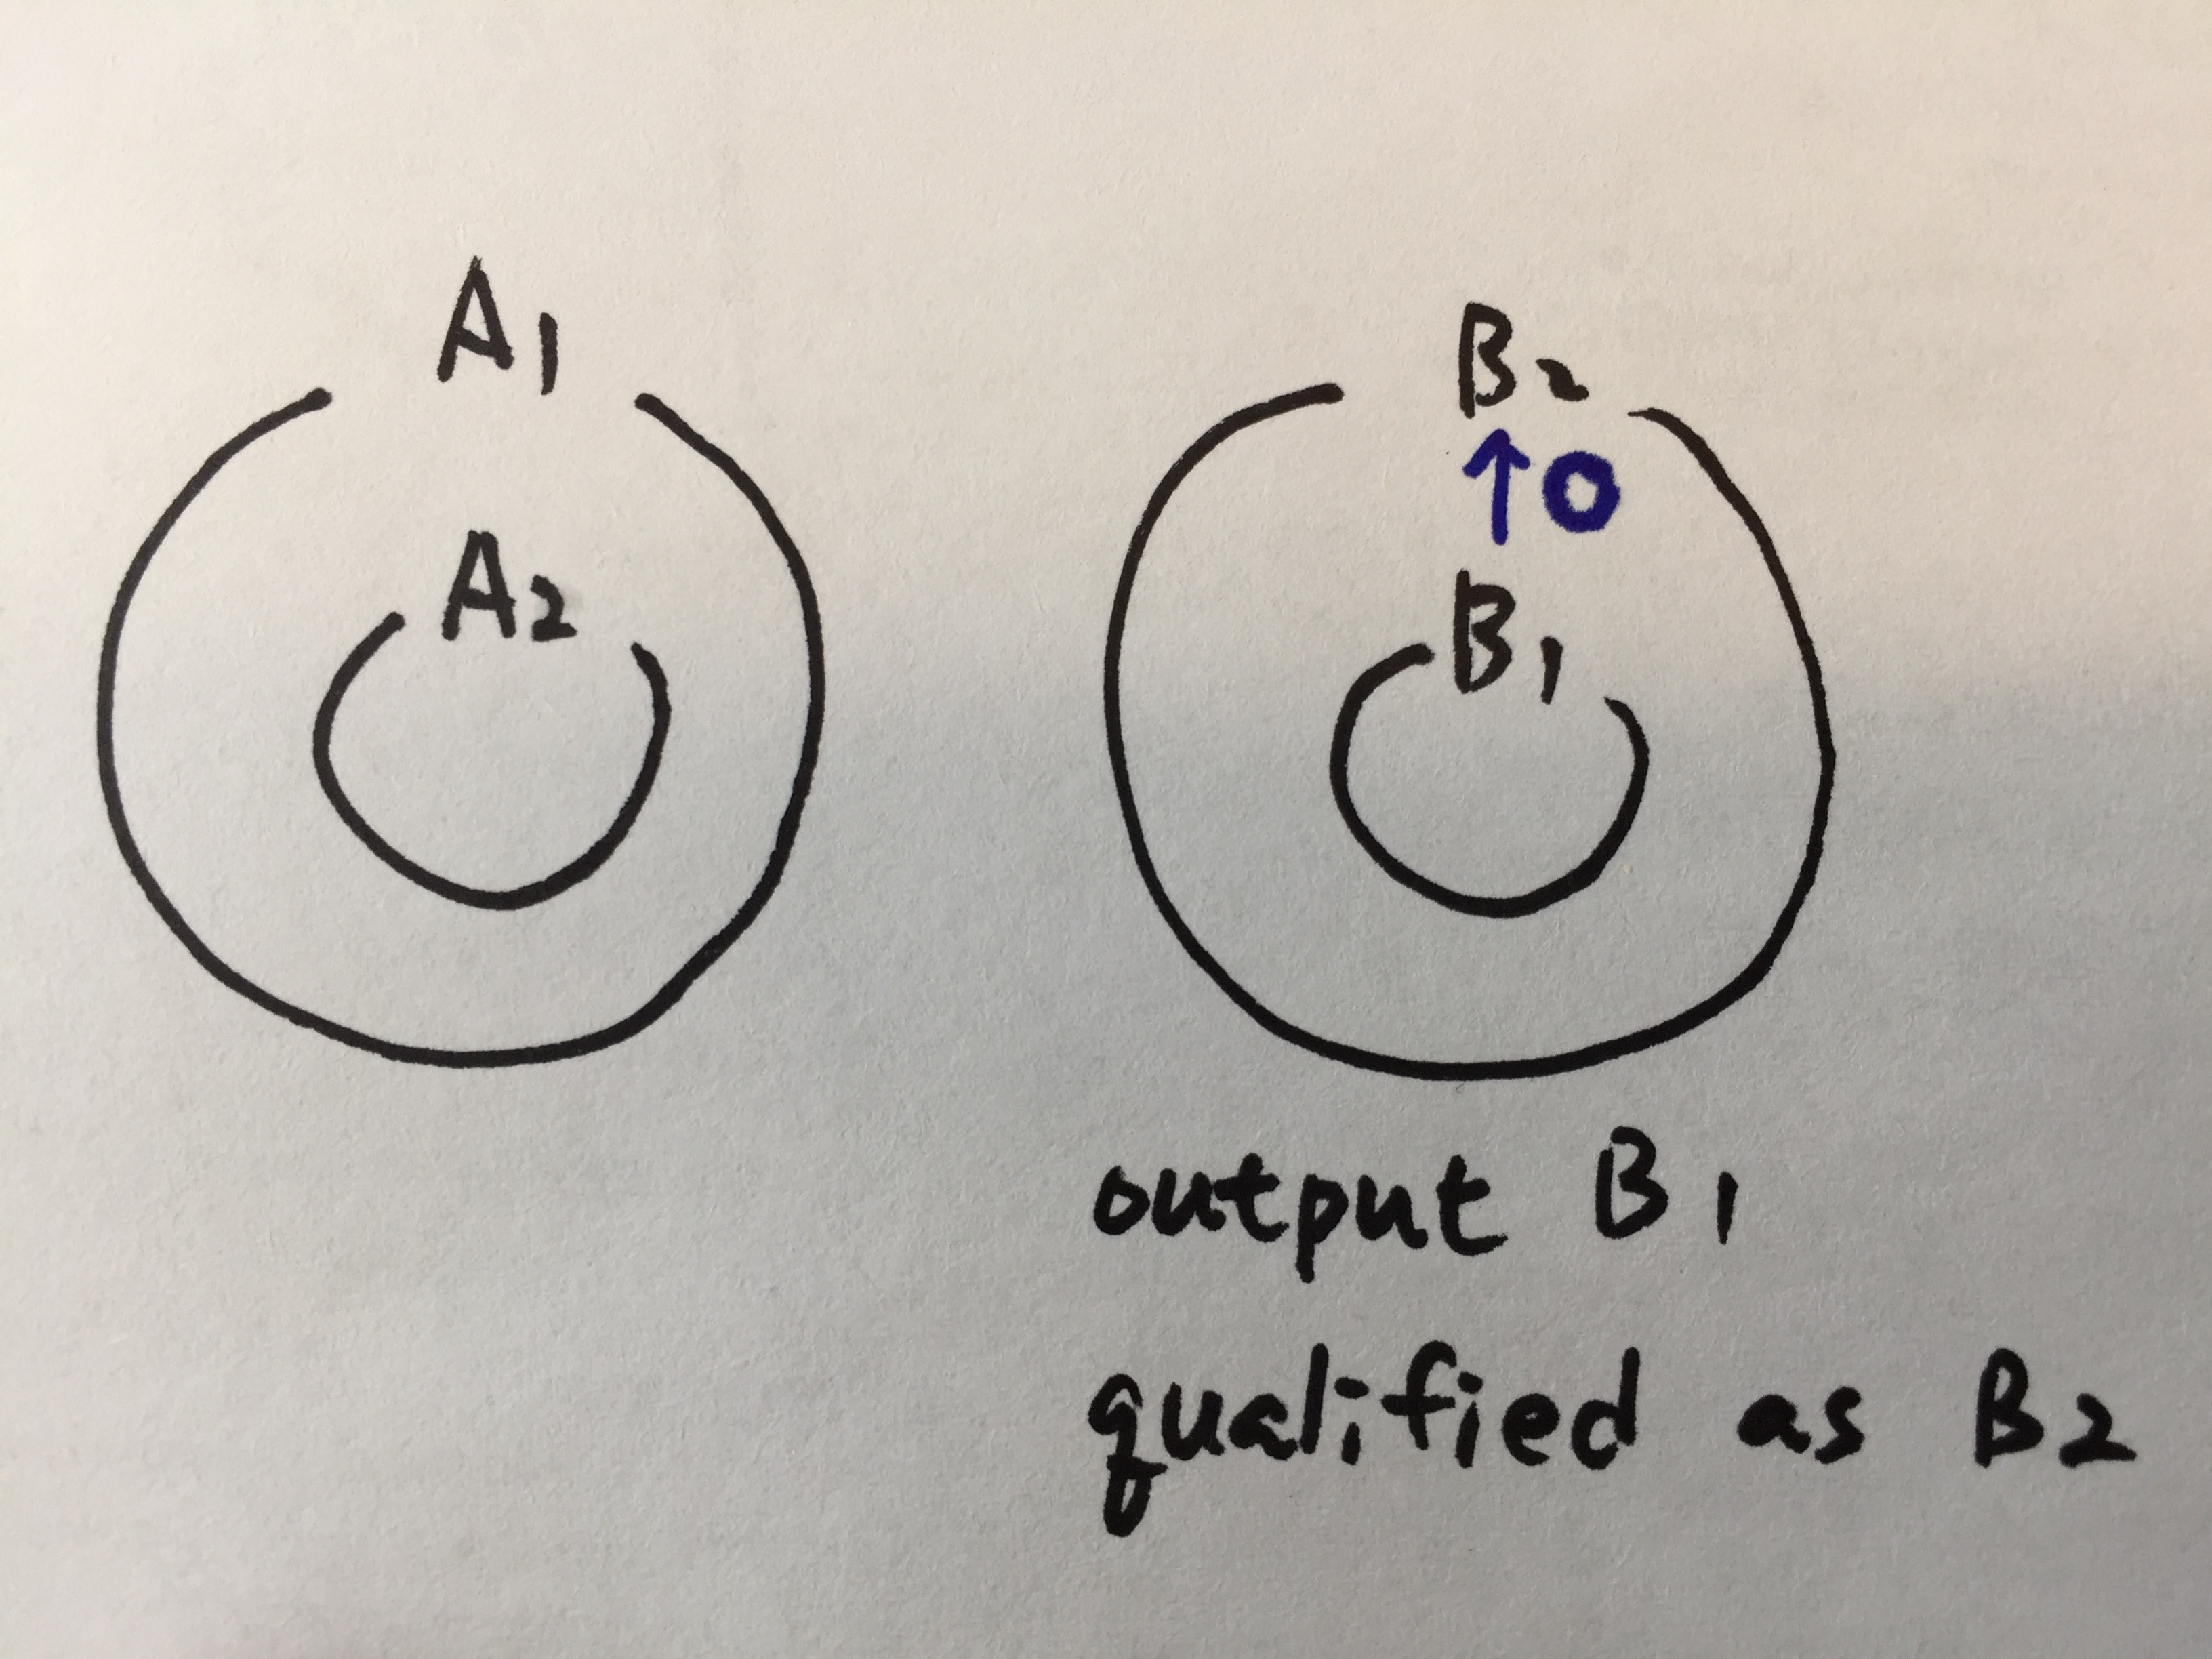 A1
A2
B2
↑O
B1
output B1
qualified as B2